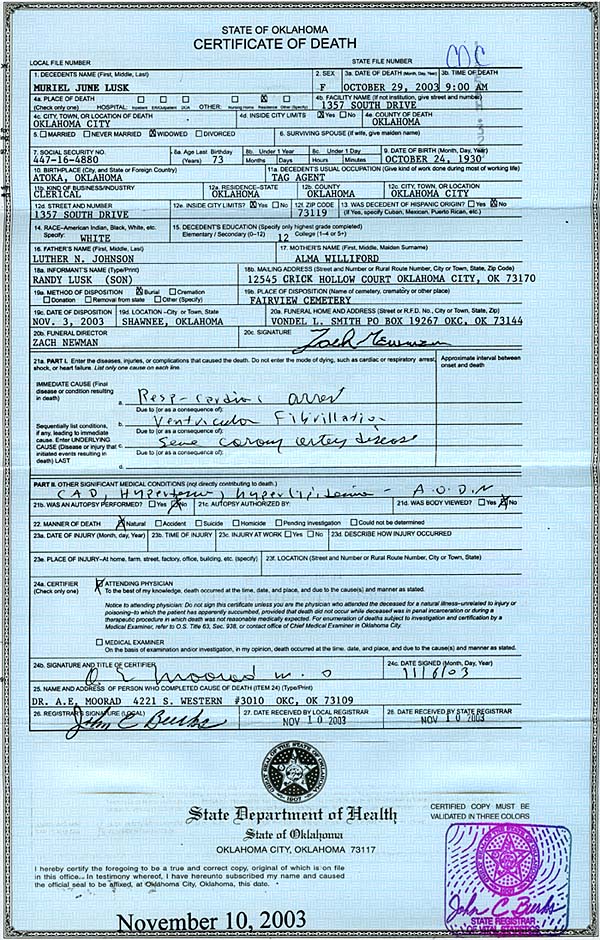 STATE OF OKLAHOMA
CERTIFICATE OF DEATH
LOCAL FILE NUMBER STATE FILE NUMBER
1. DECEDENTS NAME (First, Middle, Last) 2. SEX 3a. DATE OF DEATH (Month, Day, Year) 3b. TIME OF DEATH
MURIEL JUNE LUSK F OCTOBER 29, 2003 9:00 AM
4a. PLACE OF DEATH 4b. FACILITY NAME (If not institution, give street and number)
(Check only one) HOSPITAL: Inpatient ER/Outpatient DOA OTHER: Nursing Home Residence Other (Specify) 1357 SOUTH DRIVE
4c. CITY, TOWN, OR LOCATION OF DEATH 4d. INSIDE CITY LIMITS Yes No 4e. COUNTY OF DEATH
OKLAHOMA CITY OKLAHOMA
5. MARRIED NEVER MARRIED WIDOWED DIVORCED 6. SURVIVING SPOUSE (If wife, give maiden name)
7. SOCIAL SECURITY NO. 8a. Age Last Birthday 8b. Under 1 Year 8c. Under 1 Day 9. DATE OF BIRTH (Month, Day, Year)
447-16-4880 (Years) 73 Months Days Hours Minutes OCTOBER 24, 1930
10. BIRTHPLACE (City, and State or Foreign Country) 11a. DECEDENT'S USUAL OCCUPATION (Give kind of work done during most of working life)
ATOKA, OKLAHOMA TAG AGENT
11b. KIND OF BUSINESS/INDUSTRY 12a. RESIDENCE-STATE 12b. COUNTY 12c. CITY, TOWN, OR LOCATION
CLERICAL OKLAHOMA OKLAHOMA OKLAHOMA CITY
12d. STREET AND NUMBER 12e. INSIDE CITY LIMITS? Yes No 12f. ZIP CODE 13. WAS DECEDENT OF HISPANIC ORIGIN? Yes No
1357 SOUTH DRIVE 73119 (If Yes, specify Cuban, Mexican, Puerto Rican, etc.)
14. RACE-American Indian, Black, White, etc. 15. DECEDENT'S EDUCATION (Specify only highest grade completed)
Specify: WHITE Elementary / Secondary (0-12) 12 College (1-4 or 5+)
16. FATHER'S NAME (First, Middle, Last) 17. MOTHER'S NAME (First, Middle, Maiden Surname)
LUTHER N. JOHNSON ALMA WILLIFORD
18a. INFORMANT'S NAME (Type/Print) 18b. MAILING ADDRESS (Street and Number or Rural Route Number, City or Town, State, Zip Code)
RANDY LUSK (SON) 12545 CRICK HOLLOW COURT OKLAHOMA CITY, OK 73170
19a. METHOD OF DISPOSITION Burial Cremation 19b. PLACE OF DISPOSITION (Name of cemetery, crematory or other place)
Donation Removal from state Other (Specify) FAIRVIEW CEMETERY
19c. DATE OF DISPOSITION 19d. LOCATION-City or Town, State 20a. FUNERAL HOME AND ADDRESS (Street or R.F.D. No., City or Town, State, Zip)
NOV. 3, 2003 SHAWNEE, OKLAHOMA VONDEL L. SMITH PO BOX 19267 OKC, OK 73144
20b. FUNERAL DIRECTOR 20c. SIGNATURE
ZACH NEWMAN Zach Newman
21a. PART I. Enter the diseases, injuries, or complications that caused the death. Do not enter the mode of dying, such as cardiac or respiratory arrest, Approximate interval between
shock, or heart failure. List only one cause on each line. onset and death
IMMEDIATE CAUSE (Final
disease or condition resulting
in death) a. Resp-cardiac arrest
Due to (or as a consequence of):
Sequentially list conditions, b. Ventricular Fibrillation
if any, leading to immediate Due to (or as a consequence of):
cause. Enter UNDERLYING
CAUSE (Disease or injury that c. coronary artery disease
initiated events resulting in Due to (or as a consequence of):
death) LAST
d.
PART II. OTHER SIGNIFICANT MEDICAL CONDITIONS (not directly contributing to death.)
CAD, Hypertension, hyperlipidemia - A.O.D.M
21b. WAS AN AUTOPSY PERFORMED? Yes No 21c. AUTOPSY AUTHORIZED BY: 21d. WAS BODY VIEWED? Yes No
22. MANNER OF DEATH Natural Accident Suicide Homicide Pending investigation Could not be determined
23a. DATE OF INJURY (Month, day, Year) 23b. TIME OF INJURY 23c. INJURY AT WORK Yes No 23d. DESCRIBE HOW INJURY OCCURRED
23e. PLACE OF INJURY-At home, farm, street, factory, office, building, etc. (specify) 23f. LOCATION (Street and Number or Rural Route Number, City or Town, State)
24a. CERTIFIER ATTENDING PHYSICIAN
(Check only one) To the best of my knowledge, death occurred at the time, date, and place, and due to the cause(s) and manner as stated.
Notice to attending physician: Do not sign this certificate unless you are the physician who attended the deceased for a natural illness-unrelated to injury or
poisoning-to which the patient has apparently succumbed, provided that death did not occur while deceased was in penal incarceration or during a
therapeutic procedure in which death was not reasonable medically expected. For enumeration of deaths subject to investigation and certification by a
Medical Examiner, refer to O.S. Title 63, Sec. 938, or contact office of Chief Medical Examiner in Oklahoma City.
MEDICAL EXAMINER
On the basis of examination and/or investigation, in my opinion, death occurred at the time, date, and place, and due to the cause(s) and manner as stated.
24b. SIGNATURE AND TITLE OF CERTIFIER 24c. DATE SIGNED (Month, Day, Year)
A E Moorad M.D 11/6/03
25. NAME AND ADDRESS OF PERSON WHO COMPLETED CAUSE OF DEATH (ITEM 24) (Type/Print)
DR. A.E. MOORAD 4221 S. WESTERN #3010 OKC, OK 73109
26. REGISTRAR'S SIGNATURE (LOCAL) 27. DATE RECEIVED BY LOCAL REGISTRAR 28. DATE RECEIVED BY STATE REGISTRAR
John C Burks NOV 10 2003 NOV 10 2003
GREAT SEAL OF THE STATE OF OKLAHOMA
1907
State Department of Health
State of Oklahoma
OKLAHOMA CITY, OKLAHOMA 73117
CERTIFIED COPY MUST BE
VALIDATED IN THREE COLORS
I hereby certify the foregoing to be a true and correct copy, original of which is on file
in this office. In testimony whereof, I have hereunto subscribed my name and caused
the official seal to be affixed, at Oklahoma City, Oklahoma, this date.
John C Burks
STATE REGISTRAR
OF VITAL STATISTICS
November 10, 2003